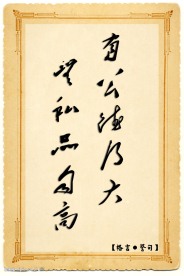 有公德乃大
無私品自高
【格言●警句】